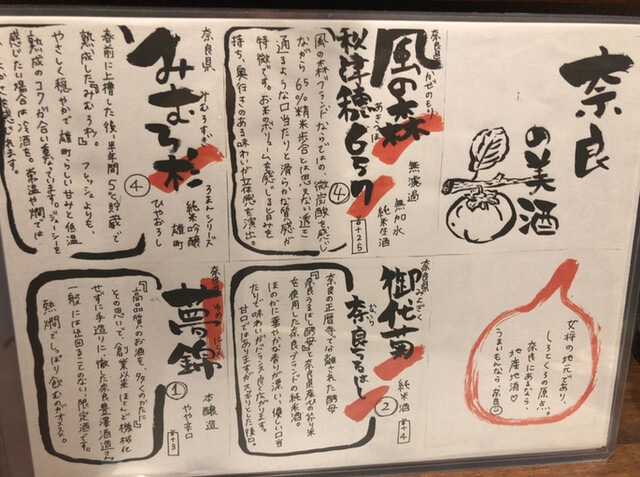 奈良
の美酒
女将の地元であり、
しろとくろの原点。
奈良にあるなら、
地産地消♡
うまいもんなら奈良
奈良県
かぜのもり
風の森
秋津穂657
あきつほ
④
無濾過
無加水
純米生酒
風の森ブランドならではの、微炭酸を感じ
ながら65%精米歩合とは思えない透き
通るような口当たりと滑らかな質感が
特徴です。お米のボリュームを感じるとろみを
持ち、奥行きのある味わいが立体感を演出。
奈良県
みむろすぎ
みむろ杉
④
ろまんシリーズ
純米吟醸
雄町
ひやおろし
春前に上槽した後、半年間5℃貯蔵で
熟成した『みむろ杉』。フレッシュよりも、
やさしく穏やかで雄町らしい甘みと低温
熟成のコクが合い重なっています。ジューシーを
感じたい場合は冷酒を。常温や燗では
奈良県
御代菊
奈良うるはし
②
純米酒
奈良の正暦寺で分離された酵母
『奈良うるはし酵母』と奈良県産の飯米
を使用した奈良ブランドの純米酒。
ほのかに華やかな香りが漂い、優しい口当
たりで味わいがバランス良く広がります。
甘口ではありますがスッキリとした後口。
奈良県
夢錦
①
本醸造
やや辛口
『高品質のお酒を、多くのかたに』
との思いで、創業以来ほとんど機械化
せずに手造りに徹した奈良豊澤酒造さん。
一般には出回ることのない限定酒です。
熱燗でしっぽり飲むのがオススメ。